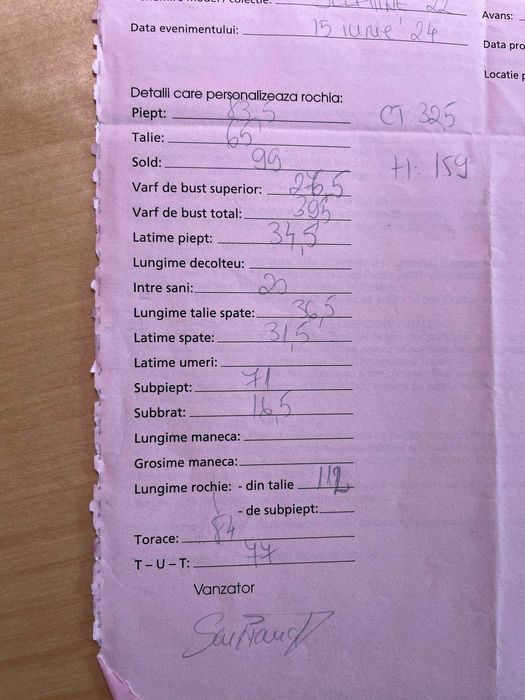 Data evenimentului: 15 iunie '24
Avans:
Data pro
Locatie
Detalii care personalizeaza rochia:
Piept: 83,5
CT: 325
Talie: 65
Sold: 99
H: 159
Varf de bust superior: 26,5
Varf de bust total: 39,5
Latime piept: 34,5
Lungime decolteu:
Intre sani: 20
Lungime talie spate: 36,5
Latime spate: 31,5
Latime umeri:
Subpiept: 71
Subbrat: 16,5
Lungime maneca:
Grosime maneca:
Lungime rochie: - din talie 112
- de subpiept:
Torace: 84
T – U – T: 77
Vanzator